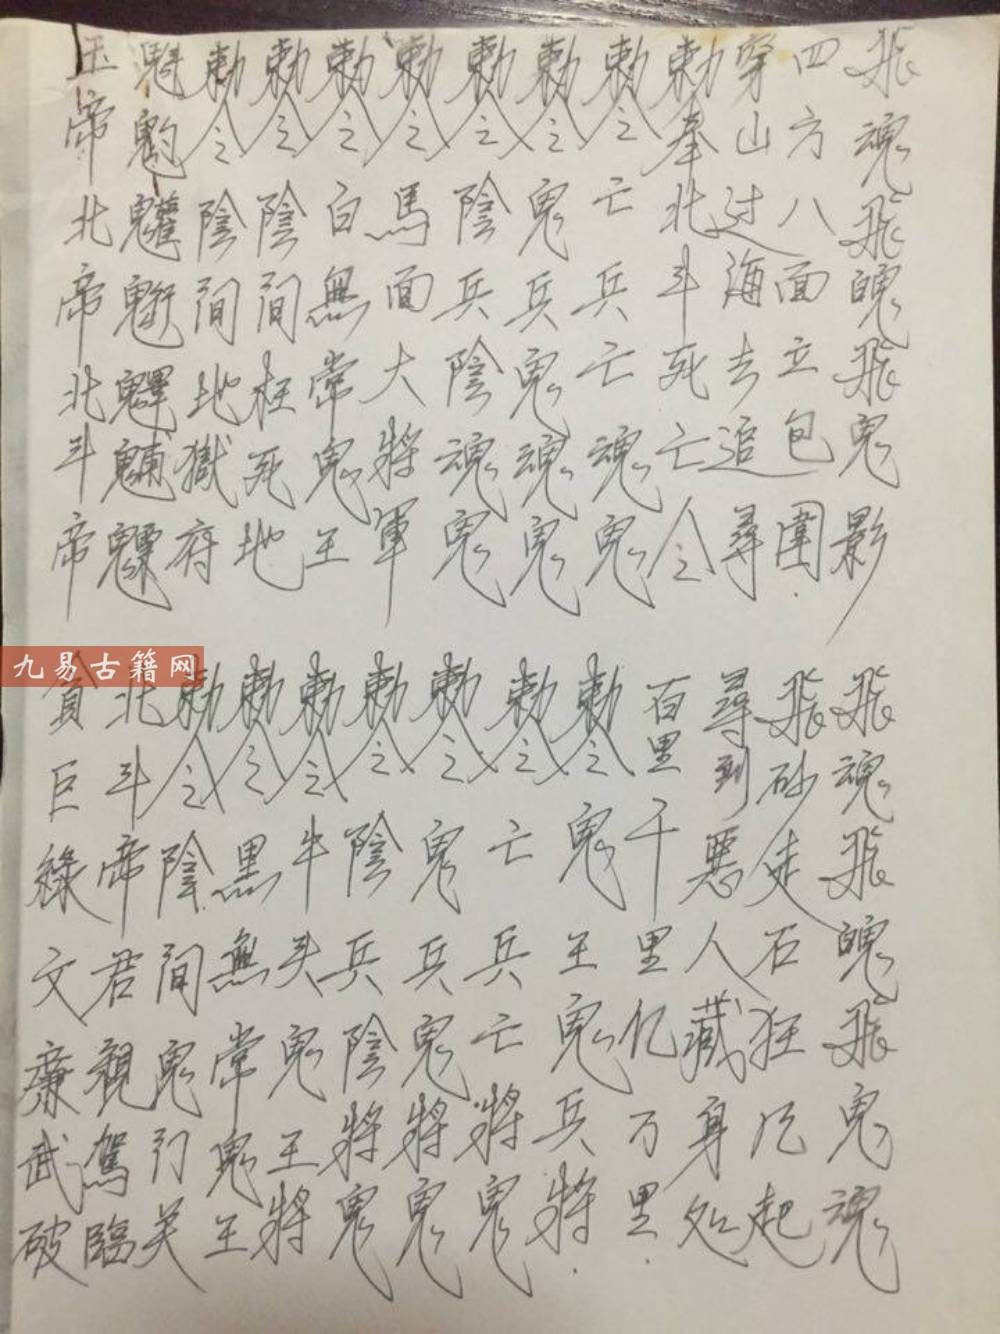 飛魂飛魄飛鬼影
四方八面立包圍
穿山过海去追尋
勅奉北斗死亡令
勅令亡兵亡魂鬼
勅令鬼兵鬼魂鬼
勅令陰兵陰魂鬼
勅令馬面大將軍
勅令白無常鬼王
勅令陰間枉死地
勅令陰間地獄府
玉帝北帝北斗帝
飛魂飛魄飛鬼魂
飛砂走石狂风起
尋到惡人藏身处
百里千里亿万里
勅令鬼王鬼兵將
勅令亡兵亡將鬼
勅令鬼兵鬼將鬼
勅令陰兵陰將鬼
勅令牛头鬼王將
勅令黑無常鬼王
勅令陰間鬼门关
北斗帝君親駕臨
貪巨綠文廉武破
九易古籍网